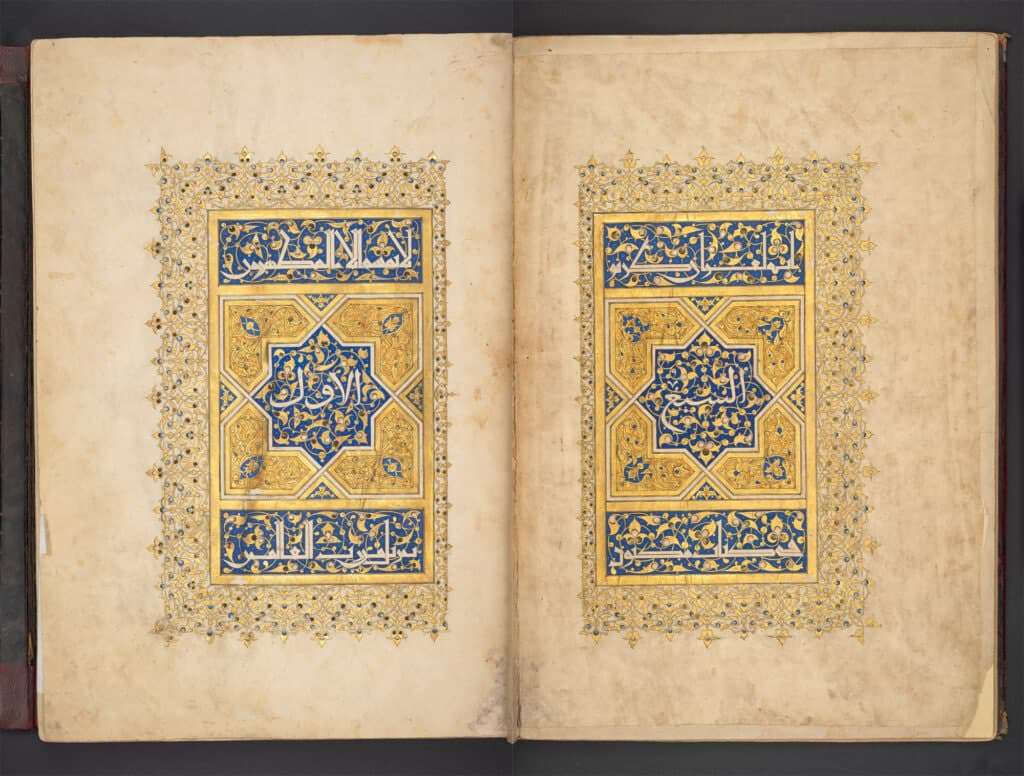 انه لقران كريم
السبع
فى كتاب مكنون
لا يمسه الا المطهرون
الاول
تنزيل من رب العالمين